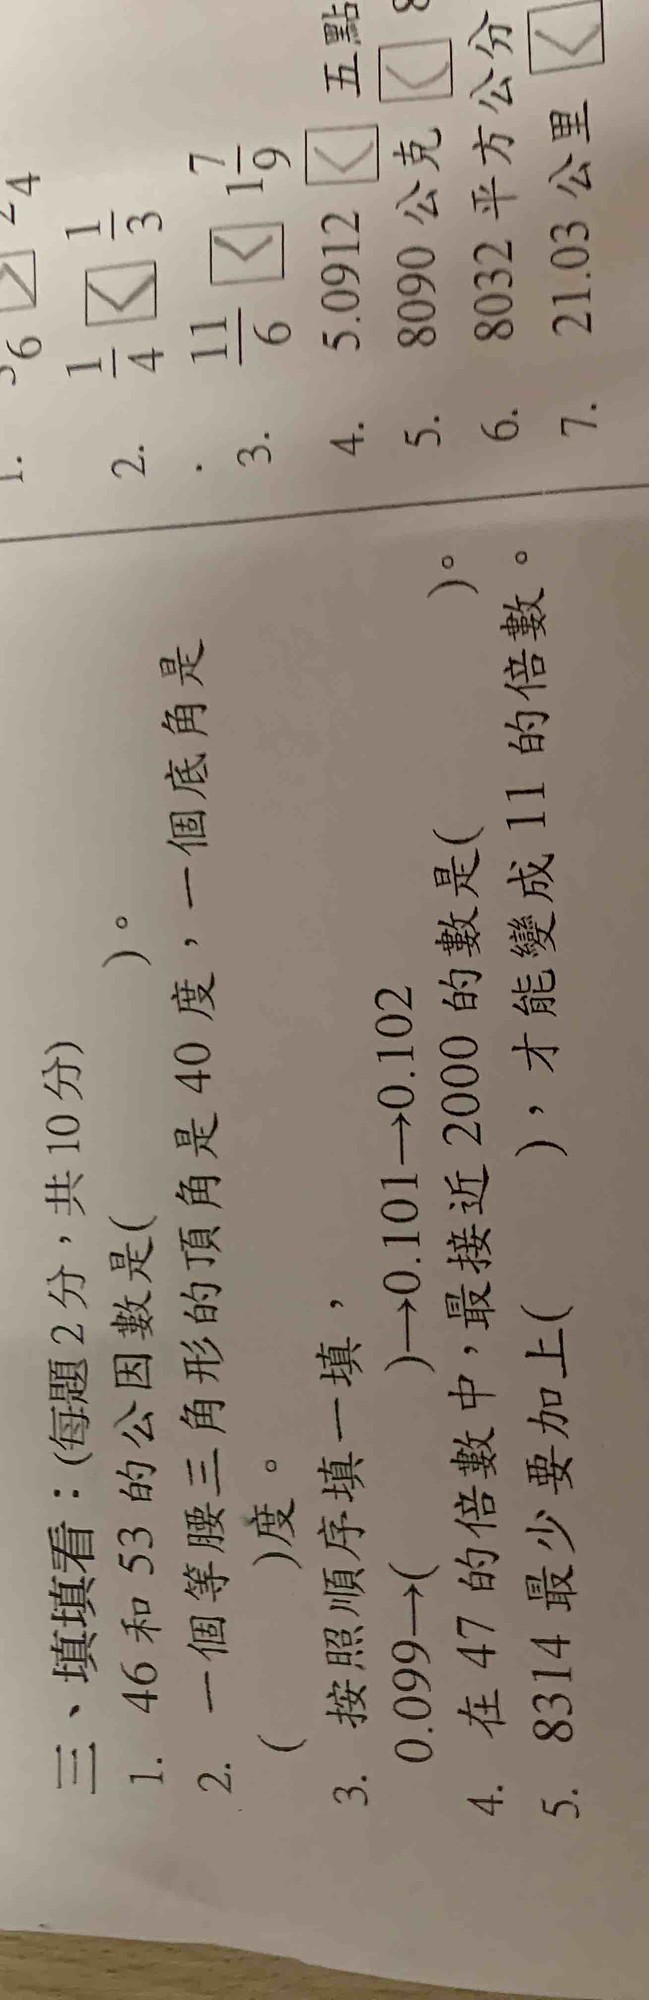 三、填填看：(每題 2 分，共 10 分)
1. 46 和 53 的公因數是( )。
2. 一個等腰三角形的頂角是 40 度，一個底角是
( )度。
3. 按照順序填一填，
0.099→( )→0.101→0.102
4. 在 47 的倍數中，最接近 2000 的數是( )。
5. 8314 最少要加上( )，才能變成 11 的倍數。
1.
6 > 4
2. 1/4 < 1/3
3. 11/6 < 1 7/9
4. 5.0912 < 五點
5. 8090 公克 <
6. 8032 平方公分
7. 21.03 公里 <